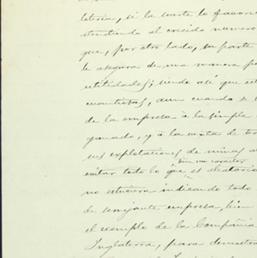 lotería, si la suerte lo favore
atendiendo al crecido numero
que, por otro lado, su parte
le asegura de una manera p
utilidades; siendo así que est
cuantiosas, aun cuando se
de la empresa à la simple
ganado, y à la venta de tod
sus explotaciones de minas
entar todo lo que es aleatorio
no estuviera indicando todo
de semejante empresa, bien
el ejemplo de la Compañia
Inglaterra, para demostra